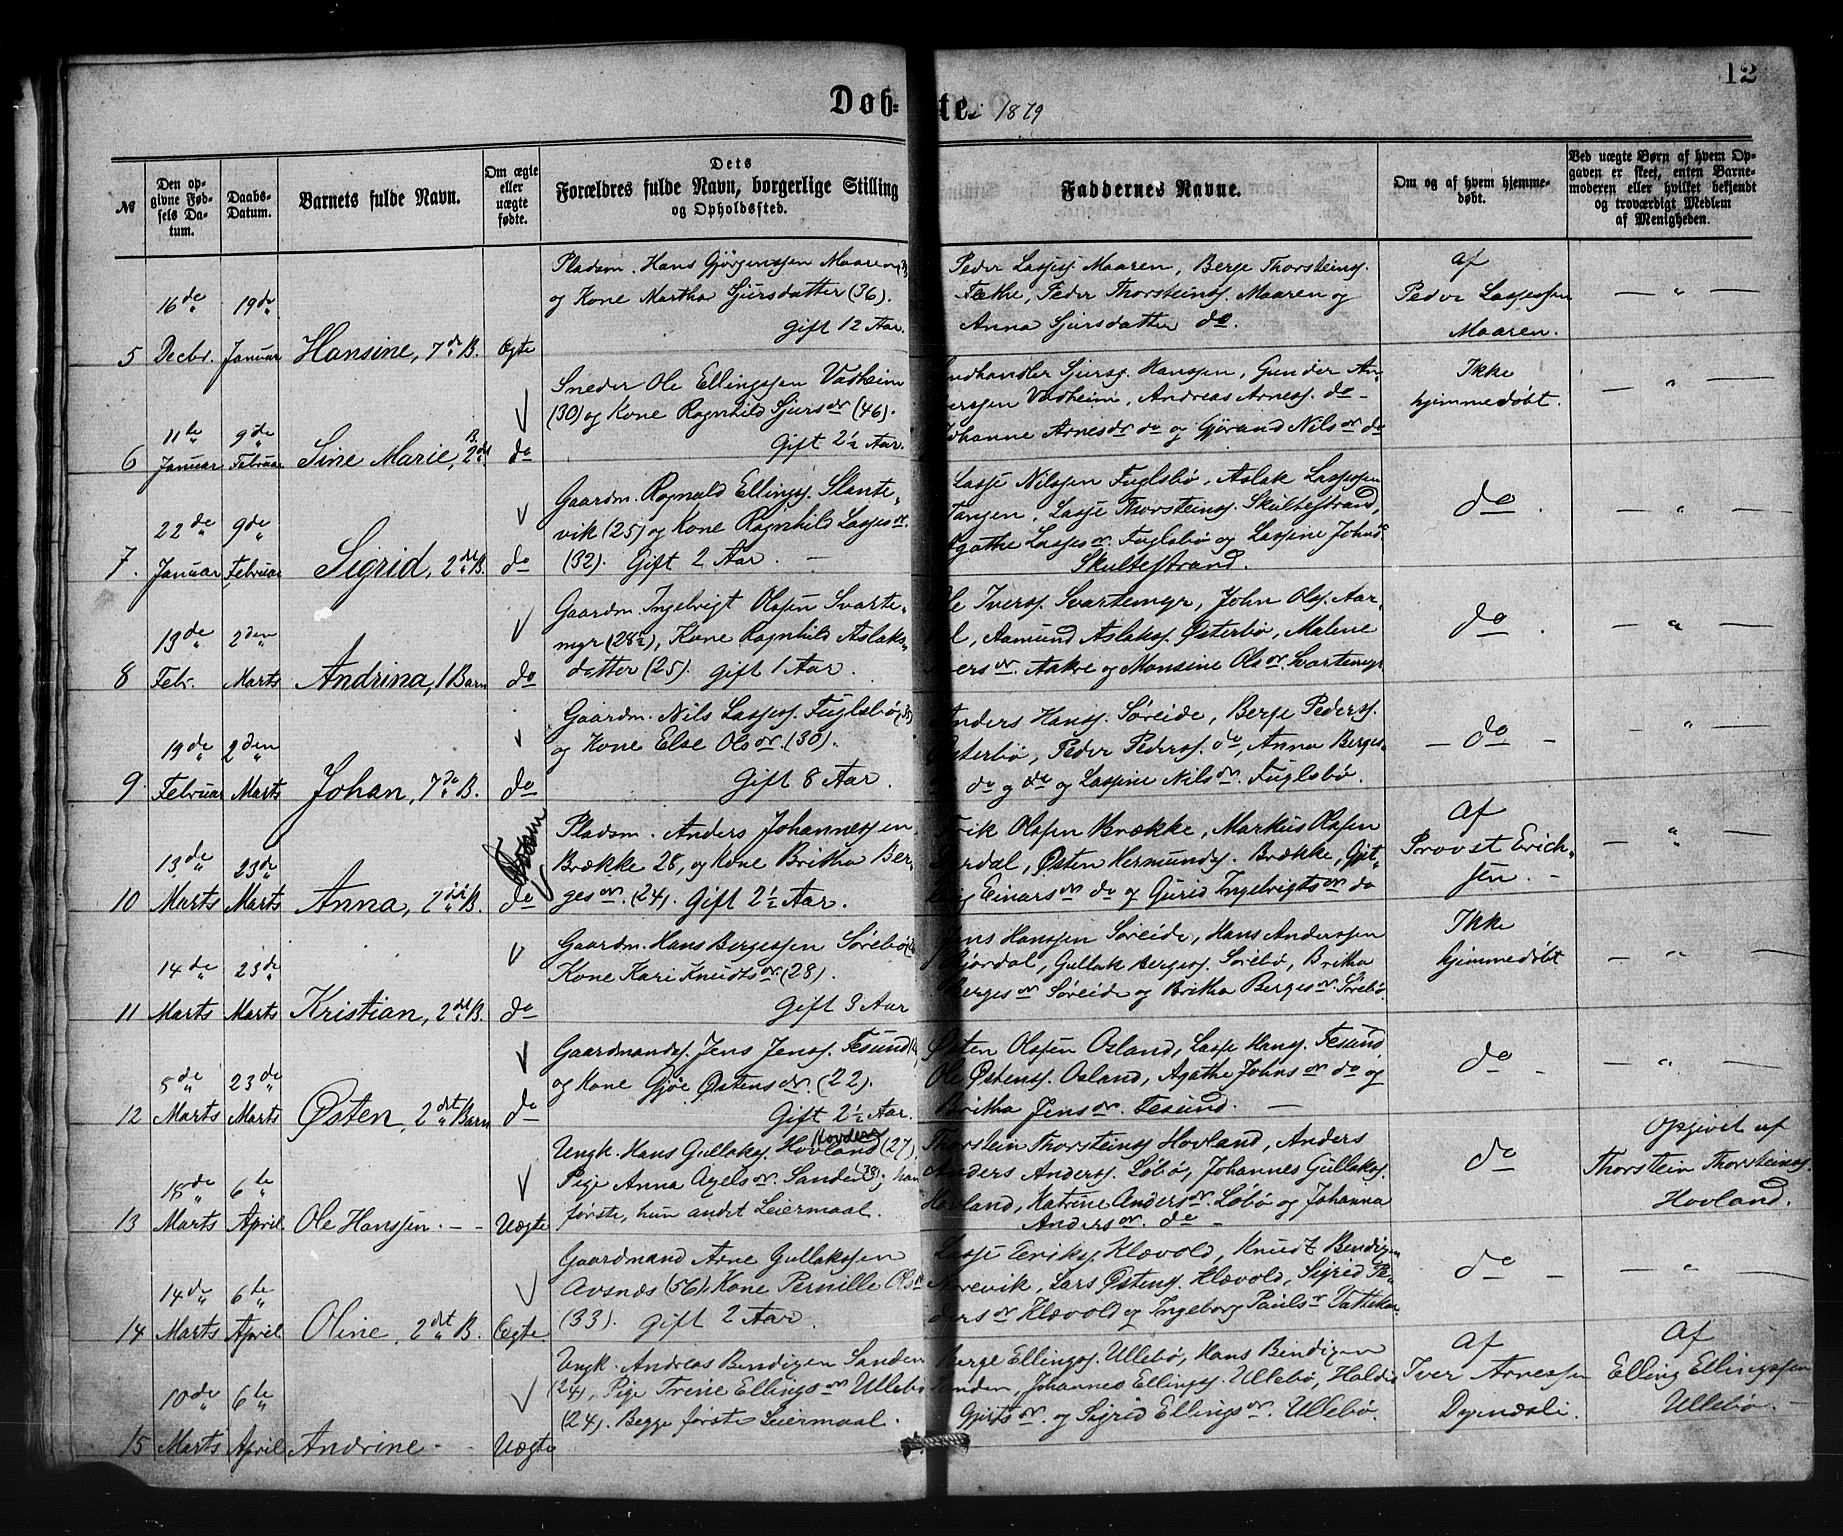 12
Døb-te. i 1879
№
Den opgivne Fødsels Datum.
Daabs-Datum.
Barnets fulde Navn.
Om ægte eller uægte fødte.
Dets
Forældres fulde Navn, borgerlige Stilling
og Opholdssted.
Faddernes Navne.
Om og af hvem hjemmedøbt.
Ved uægte Børn af hvem Opgaven er skeet, enten Barnemoderen eller hvilket bekjendt og troværdigt Medlem af Menigheden.
5 16de Decbr. 19de Januar Hansine, 7de B. Ægte
Pladsm. Hans Gjørgenssen Maaren
og Kone Martha Sjursdatter (36).
Gift 12 Aar.
Peder Lassess. Maaren, Berge Thorsteins.
Peder Thorsteins. Maaren og
Anna Sjursdatter do.
af
Peder Lassessen
Maaren.
— " —
6 11te Januar 9de Februar Sine Marie, 2det B. do
Sneder Ole Ellingssen Vadheim
(30) og Kone Ragnhild Sjursdr (46).
Gift 2½ Aar.
Landhandler Sjurs. Hanssen, Gunder An-
derssen Vadheim, Andreas Arness. do
Johanne Arnesdr do og Gjørand Nilsdr do
Ikke
hjemmedøbt.
— " —
7. 22de Januar 9de Februar Sigrid, 2det B. do
Gaardm. Ragnald Ellings. Slante-
vik (25) og Kone Ragnhild Lassesdr.
(32). Gift 2 Aar. —
Lasse Nilssen Fuglsbø, Aslak Lassessen
Tangen, Lasse Thorsteins. Skultestrand,
Agathe Lassesdr. Fuglsbø og Lassine Johnsd.
Skultestrand.
do.
— " —
8 13de Febr. 2den Marts Andrina, 1 Barn do
Gaardm. Ingelvigt Olssen Svarte-
myr (28½), Kone Ragnhild Aslaks-
datter (25). gift 1 Aar.
Ole Ivers. Svartemyr, John Ols. Aar-
dal, Aamund Aslaks. Østerbø, Malene
Iversdr. Aakre og Monsine Olsdr. Svartemyr
do.
— " —
9. 19de Februar 2den Marts Johan, 7de B. do
Gaardm. Nils Lassess. Fuglsbø
og Kone Else Olsdr. (30).
Gift 8 Aar.
Anders Hanss. Søreide, Berge Peders.
Østerbø, Peder Peders. do, Anna Berges-
dr. do og do og Lassine Nilsdr. Fuglsbø.
— do —
— " —
10 13de Marts 23de Marts Anna, 2det B. do
Pladsm. Anders Johannessen
Brække 28, og Kone Britha Ber-
gesdr. (24). Gift 2½ Aar.
Erik Olssen Brække, Markus Olssen
Østen Hermunds. Brække,
Einarsdr do og Gurid Ingelvigtsdr do
Af
Provst Erich-
sen. —
— " —
11 14de Marts 23de Marts Kristian, 2det B. do
Gaardm. Hans Bergessen Sørebø
Kone Kari Knudtsdr (28).
Gift 3 Aar
Jens Hanssen Søreide, Hans Anderssen
Gullak Berges. Sørebø, Britha
Bergesdr Søreide og Britha Bergesdr. Sørebø.
Ikke
hjemmedøbt
— " —
12 5de Marts 23de Marts Østen, 2det Barn do
Gaardmands. Jens Jenss. Tesund
og Kone Gjøe Østensdr. (22).
Gift 2½ Aar.
Østen Olssen Osland, Lasse Hans. Tesund
Ole Østens. Osland, Agathe Johnsdr do og
Britha Jensdr. Tesund. —
do —
— " —
13 18de Marts 6te April Ole Hanssen. — — Uægte
Ungk. Hans Gullaks. Hovland (27).
Pige Anna Axelsdr. Sanden (38); han
første, hun andet Leiermaal.
Thorstein Thorsteins. Hovland, Anders
Anders Anders. Løbø, Johannes Gullaks.
Hovland, Katrine Andersdr. Løbø og Johanna
Andersdr. do —
do
Opgivet af
Thorstein Thorsteins.
Hovland.
14 14de Marts 6te April Oline, 2det B. Ægte.
Gaardmand Arne Gullakssen
Avsnæs (56), Kone Pernille Olsdr
(33). gift 2 Aar.
Lasse Eriks. Klævold, Knudt Bendixen
Nørevik, Lars Østens. Klævold, Sigrid Pe-
dersdr Klævold og Ingeborg Paulsdr
do —
— " —
15 10de Marts 6te April Andrine — — Uægte
Ungk. Andreas Bendixen Sanden
(24), Pige Trine Ellingsdr Ullebø
(24). Begge første Leiermaal.
Berge Ellings. Ullebø, Hans Bendixen
Sanden, Johannes Ellings. Ullebø,
og Sigrid Ellingsdr. Ullebø.
Af
Iver Arnessen
Af
Elling Ellingssen
Ullebø. —